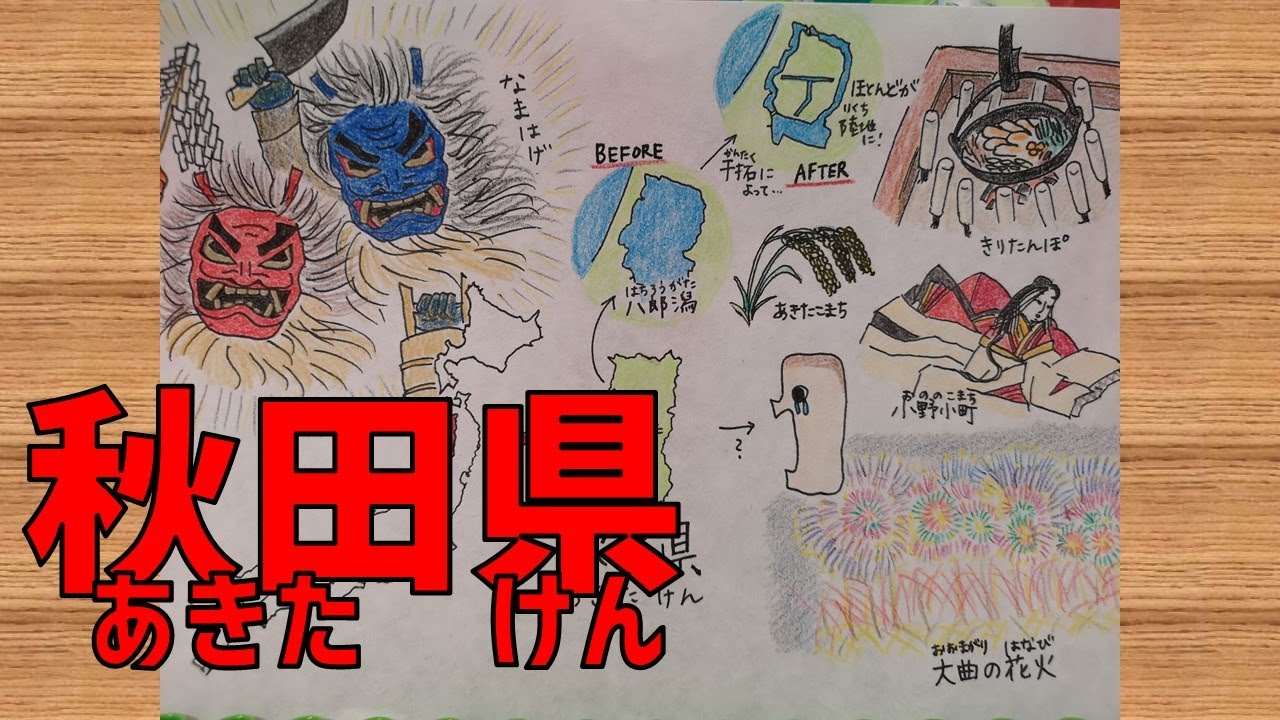 なまはげ
BEFORE
はちろうがた
八郎潟
かんたく
干拓に
よって…
AFTER
ほとんどが
りくち
陸地
に!
きりたんぽ
あきたこまち
おののこまち
小野小町
?
県
けん
おおまがり はなび
大曲の花火
秋田県
あきた けん